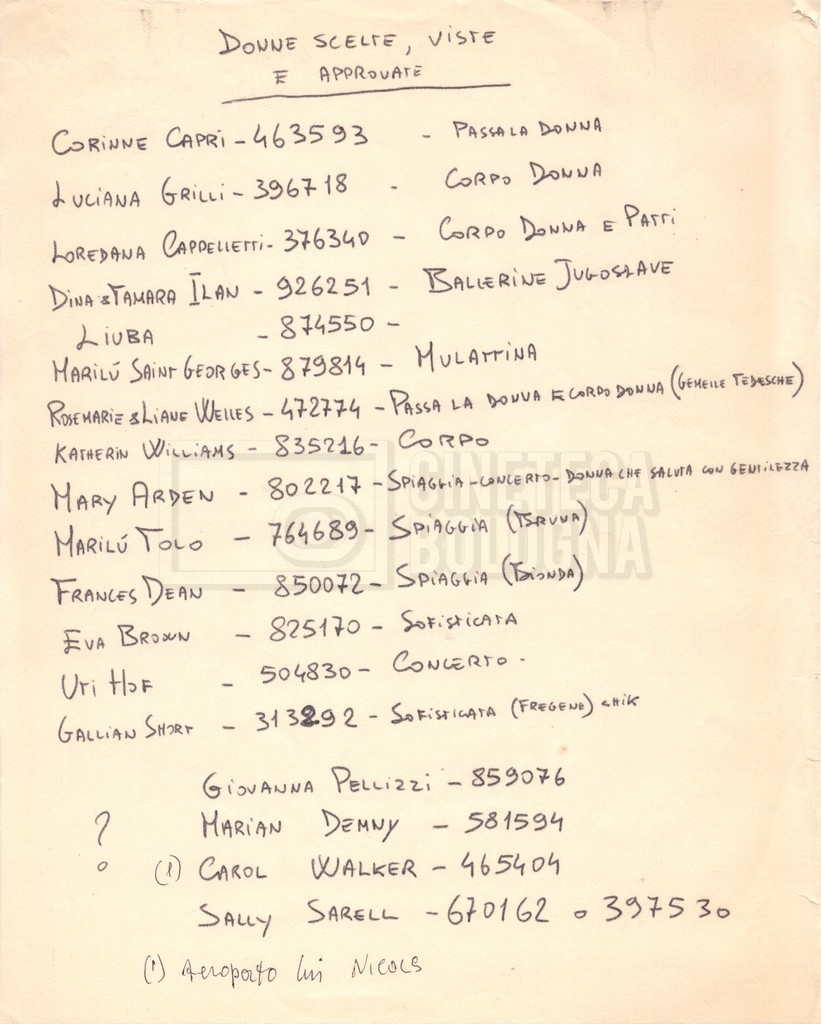 DONNE SCELTE, VISTE
E APPROVATE
CORINNE CAPRI - 463593 - PASSA LA DONNA
LUCIANA GRILLI - 396718 - CORPO DONNA
LOREDANA CAPPELLETTI - 376340 - CORPO DONNA E PATTI
DINA & TAMARA ILAN - 926251 - BALLERINE JUGOSLAVE
LIUBA - 874550 -
MARILÚ SAINT GEORGES - 879814 - MULATTINA
ROSEMARIE & LIANE WELLES - 472774 - PASSA LA DONNA E CORPO DONNA (GEMELLE TEDESCHE)
KATHERIN WILLIAMS - 835216 - CORPO
MARY ARDEN - 802217 - SPIAGGIA - CONCERTO - DONNA CHE SALUTA CON GENTILEZZA
MARILÚ TOLO - 764689 - SPIAGGIA (BRUNA)
FRANCES DEAN - 850072 - SPIAGGIA (BIONDA)
EVA BROWN - 825170 - SOFISTICATA
UTI HOF - 504830 - CONCERTO -
GALLIAN SHORT - 313292 - SOFISTICATA (FREGENE) CHIK
GIOVANNA PELLIZZI - 859076
? MARIAN DEMNY - 581594
(1) CAROL WALKER - 465404
SALLY SARELL - 670162 o 397530
(1) Aeroporto
CINETECA
BOLOGNA